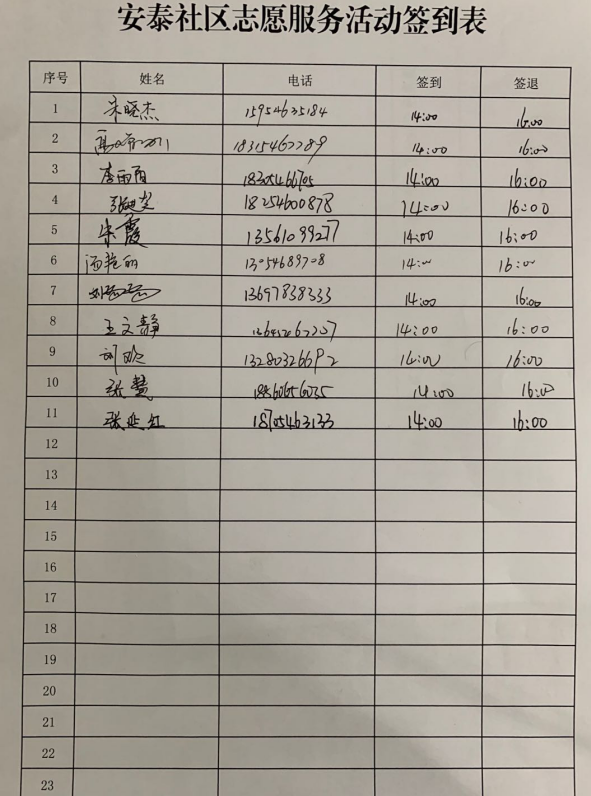 安泰社区志愿服务活动签到表
序号 姓名 电话 签到 签退
1 宋晓杰 15954635184 14:00 16:00
2 14:00 16:00
3 李雨雨 14:00 16:00
4 18254600878 14:00 16:00
5 宋霞 13561099277 14:00 16:00
6 汤艳丽 14:00 16:00
7 13697838333 14:00 16:00
8 王文静 14:00 16:00
9 刘欣 14:00 16:00
10 张慧 14:00 16:00
11 张延红 18705463133 14:00 16:00
12
13
14
15
16
17
18
19
20
21
22
23